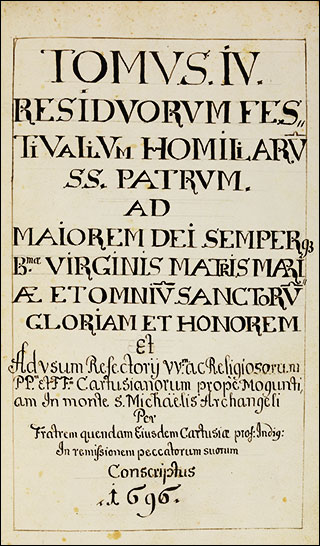 TOMVS. IV.
RESIDVORVM FES,,
TIVALIVM HOMILIARŪ
SS. PATRVM.
AD
MAIOREM DEI SEMPERQ3
B.mæ VIRGINIS MATRIS MARI,,
Æ ET OMNIŪ SANCTORŪ
GLORIAM ET HONOREM
Et
Ad vsum Refectorij VV. ac Religiosorum
PP. et FF. Cartusianorum prope Mogunti,,
am In monte S. Michaelis Archangeli
Per
Fratrem quendam Eiusdem Cartusiæ prof: Indig:
In remissionem peccatorum suorum
Conscriptus
.1696.